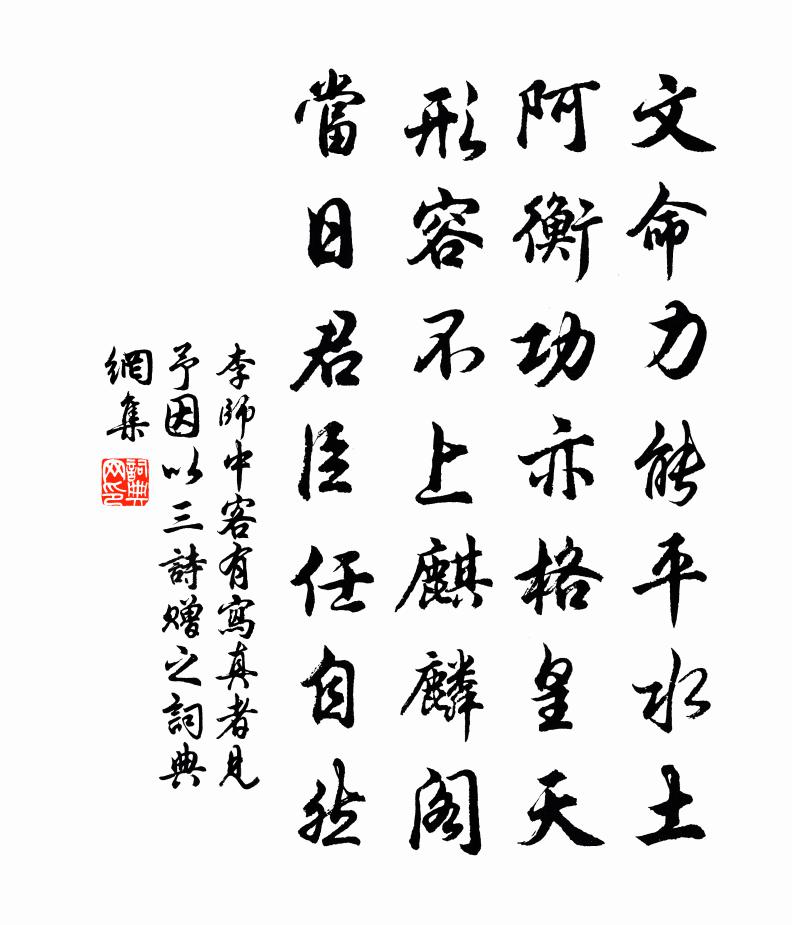 文命力能平水土
阿衡功亦格皇天
形容不上麒麟阁
當日君臣任自然
李師中客有寫真者見
予因以三詩贈之詞典
網集
詞典
网印